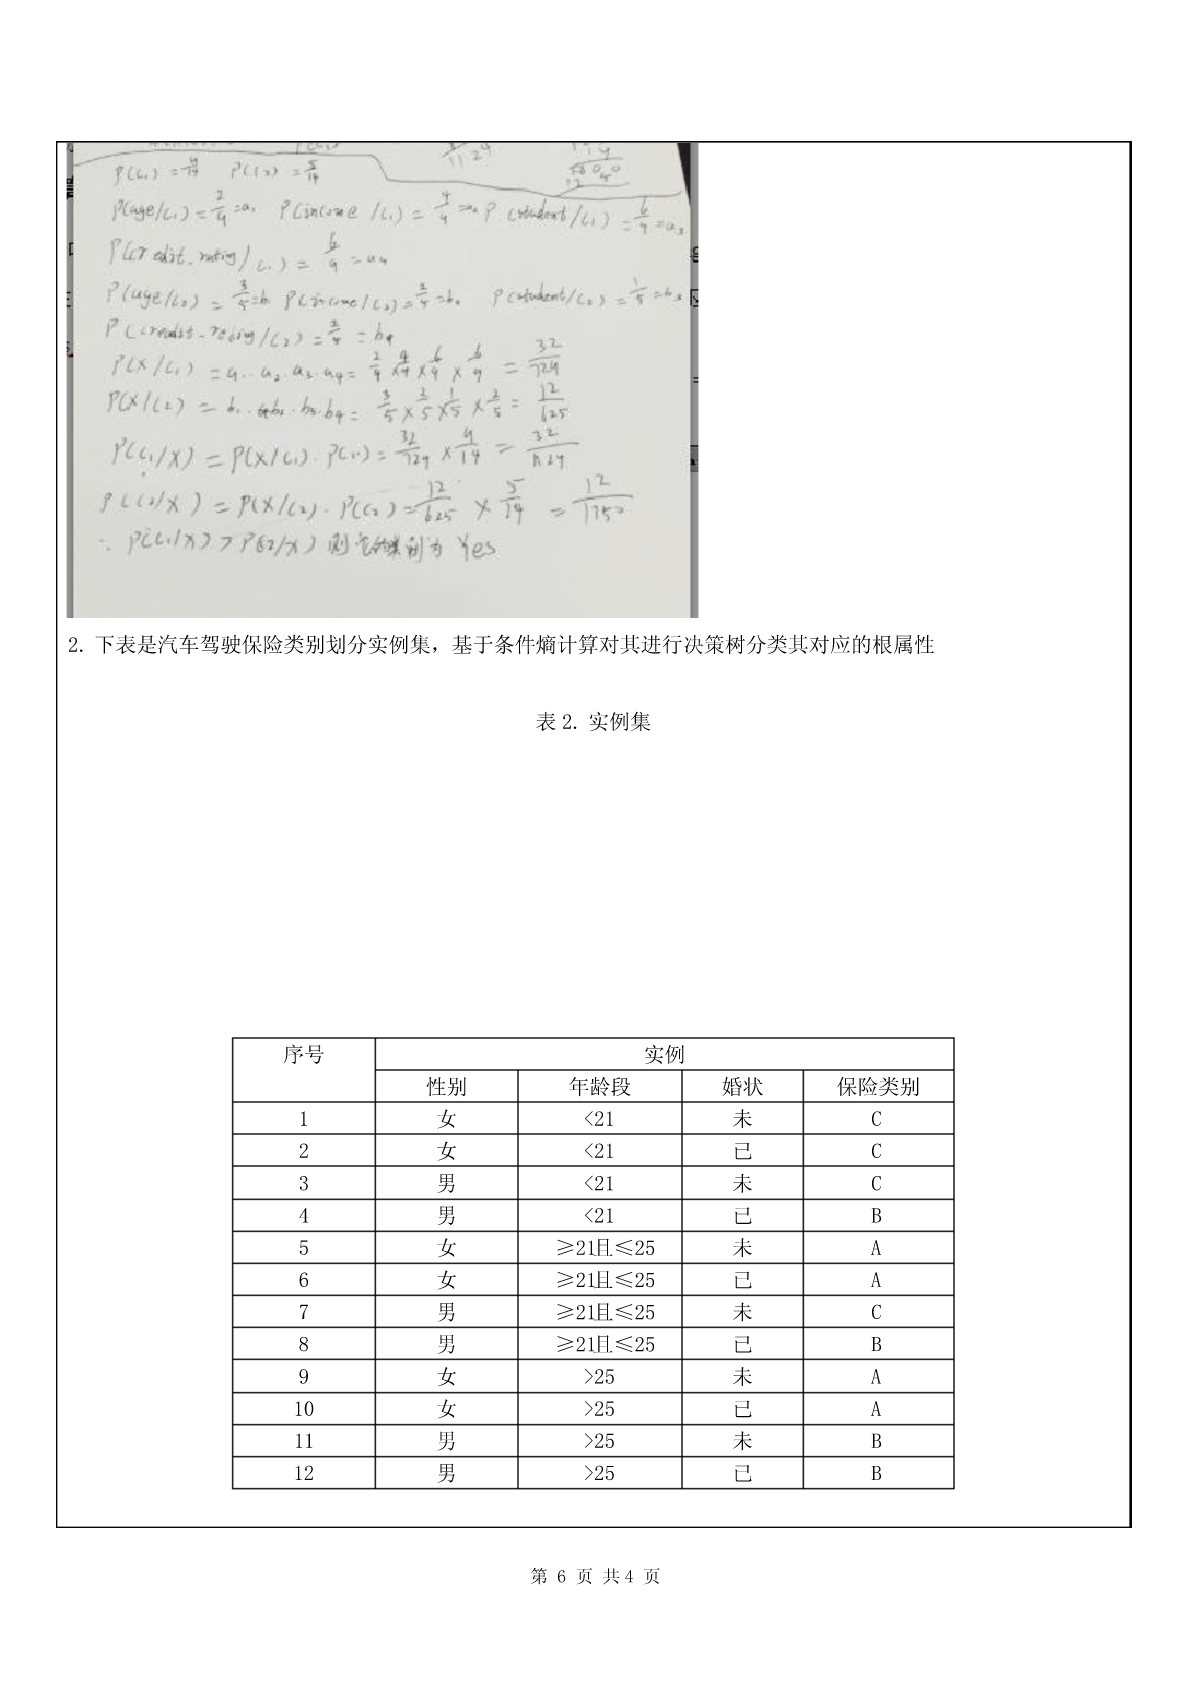 P(C₁) = 9/14 P(C₂) = 5/14
P(age/C₁) = 2/9 = a₁ P(income/C₁) = 4/9 = a₂ P(student/C₁) = 6/9 = a₃
P(credit_rating/C₁) = 6/9 = a₄
P(age/C₂) = 3/5 = b₁ P(income/C₂) = = b₂ P(student/C₂) = 1/5 = b₃
P(credit_rating/C₂) = = b₄
P(X/C₁) = a₁·a₂·a₃·a₄ = 2/9 × 4/9 × 6/9 × 6/9 = 32/729
P(X/C₂) = b₁·b₂·b₃·b₄ = 3/5 × 2/5 × 1/5 × 2/5 = 12/625
P(C₁/X) = P(X/C₁)·P(C₁) = 32/729 × 9/14 = 32/
P(C₂/X) = P(X/C₂)·P(C₂) = 12/625 × 5/14 = 12/1750
∴ P(C₁/X) > P(C₂/X) 则它的类别为 Yes
2. 下表是汽车驾驶保险类别划分实例集，基于条件熵计算对其进行决策树分类其对应的根属性
表 2. 实例集
序号 实例
性别 年龄段 婚状 保险类别
1 女 <21 未 C
2 女 <21 已 C
3 男 <21 未 C
4 男 <21 已 B
5 女 ≥21且≤25 未 A
6 女 ≥21且≤25 已 A
7 男 ≥21且≤25 未 C
8 男 ≥21且≤25 已 B
9 女 >25 未 A
10 女 >25 已 A
11 男 >25 未 B
12 男 >25 已 B
第 6 页 共 4 页